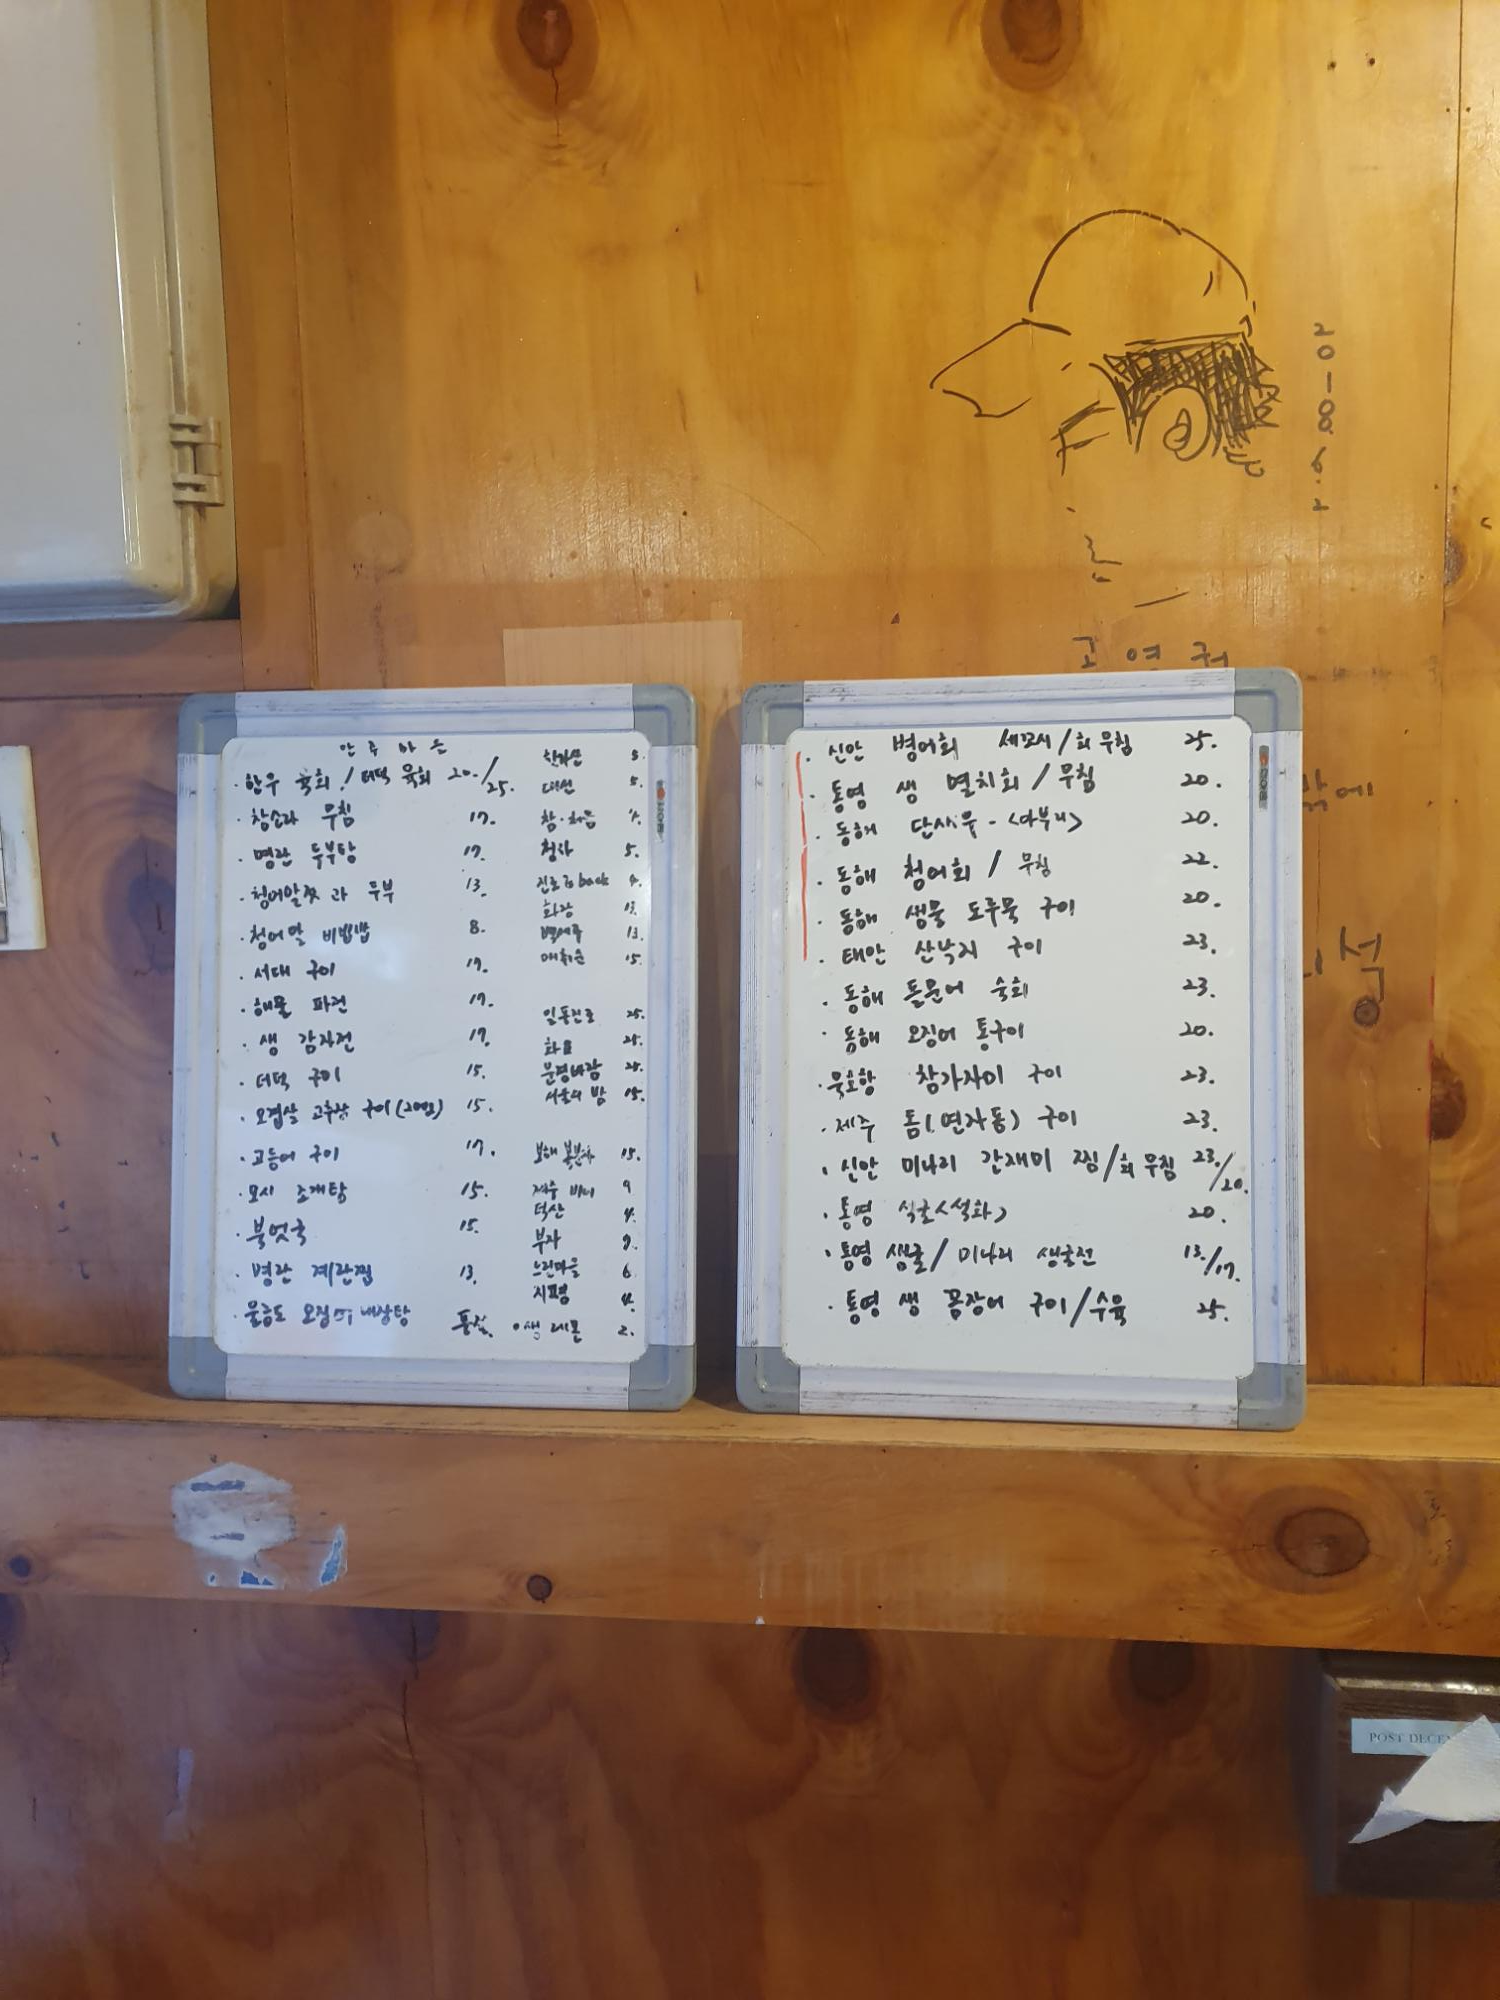 고 영 귀
안 주 마 은
한우 육회 / 더덕 육회 20./25.
참소라 무침 17.
명란 두부탕 17.
청어알젓 과 두부 13.
청어알 비빔밥 8.
서대 구이 17.
해물 파전 17.
생 감자전 17.
더덕 구이 15.
오겹살 고추장 구이 15.
고등어 구이 17.
모시 조개탕 15.
북엇국 15.
명란 계란찜 13.
울릉도 오징어 내장탕 품절.
5.
대선 5.
참·처음
청하 5.
진로 is back 4.
화랑 13.
백세주 13.
매취순 15.
일품진로 25.
화요 25.
문경바람 25.
서울의 밤 15.
보해 복분자 15.
9
덕산 4.
부자 9.
느린마을 6
지평 4.
생 레몬 2.
신안 병어회 세꼬시/회무침 25.
통영 생 멸치회 / 무침 20.
동해 단새우 - <아부리> 20.
동해 청어회 / 무침 22.
동해 생물 도루묵 구이 20.
태안 산낙지 구이 23.
동해 돌문어 숙회 23.
동해 오징어 통구이 20.
묵호항 참가자미 구이 23.
제주 돔(연자돔) 구이 23.
신안 미나리 간재미 찜/회무침 23./20.
통영 석굴<석화> 20.
통영 생굴/ 미나리 생굴전 13./17.
통영 생 꼼장어 구이/수육 25.
밖에
POST DECE